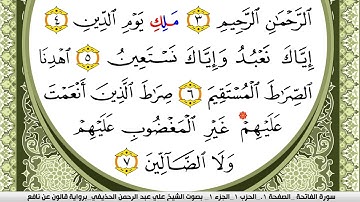 الرَّحْمَٰنِ الرَّحِيمِ ٣ مَلِكِ يَوْمِ الدِّينِ ٤
إِيَّاكَ نَعْبُدُ وَإِيَّاكَ نَسْتَعِينُ ٥ اهْدِنَا
الصِّرَاطَ الْمُسْتَقِيمَ ٦ صِرَاطَ الَّذِينَ أَنْعَمْتَ
عَلَيْهِمْ غَيْرِ الْمَغْضُوبِ عَلَيْهِمْ
وَلَا الضَّالِّينَ ٧
سورة الفاتحة _ الصفحة ١_ الحزب ١_ الجزء ١_ بصوت الشيخ علي عبد الرحمن الحذيفي_ برواية قالون عن نافع